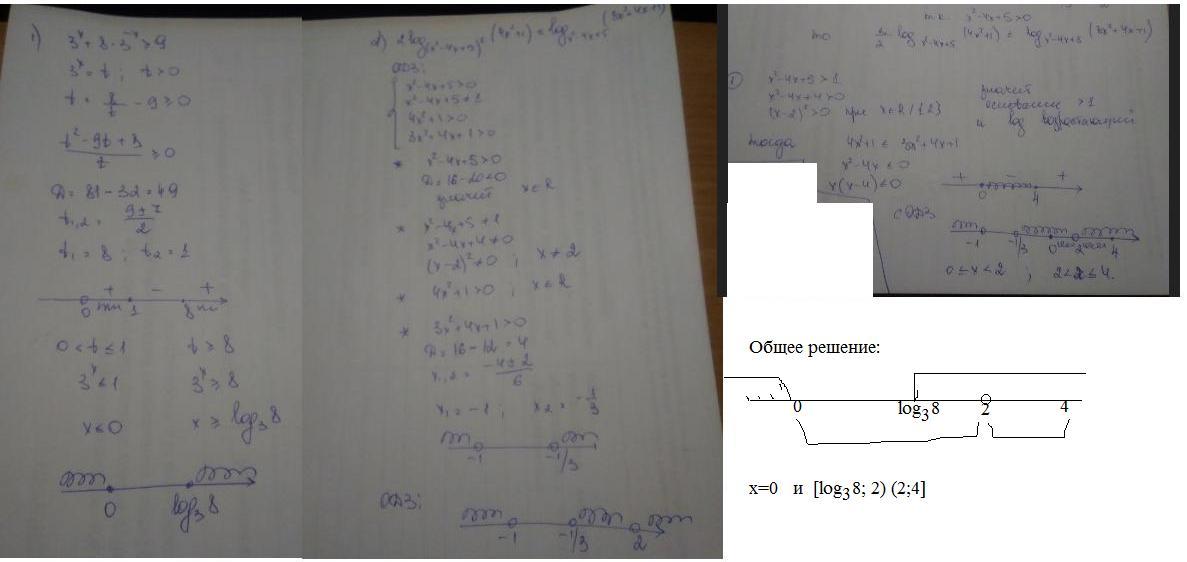 1) 3^x + 8·3^-x ≥ 9
3^x = t ; t > 0
t = 8/t - 9 ≥ 0
(t² - 9t + 8)/t ≥ 0
D = 81 - 32 = 49
t₁,₂ = (9 ± 7)/2
t₁ = 8 ; t₂ = 1
+ - +
0 1 8
0 < t ≤ 1 t ≥ 8
3^x ≤ 1 3^x ≥ 8
x ≤ 0 x ≥ log₃8
0 log₃8
2) 2 log_(x²-4x+5)² (4x²+1) ≤ log_x²-4x+5 (3x²+4x+1)
ОДЗ:
x²-4x+5 > 0
x²-4x+5 ≠ 1
4x²+1 > 0
3x²+4x+1 > 0
* x²-4x+5 > 0
D = 16 - 20 < 0
значит x ∈ R
* x²-4x+5 ≠ 1
x²-4x+4 ≠ 0
(x-2)² ≠ 0 ; x ≠ 2
* 4x²+1 > 0 ; x ∈ R
* 3x²+4x+1 > 0
D = 16 - 12 = 4
x₁,₂ = (-4 ± 2)/6
x₁ = -1 ; x₂ = -1/3
-1 -1/3
ОДЗ:
-1 -1/3 2
т.к. x²-4x+5 > 0
то 2/2 log_x²-4x+5 (4x²+1) ≤ log_x²-4x+5 (3x²+4x+1)
x²-4x+5 > 1
x²-4x+4 > 0
(x-2)² > 0 при x ∈ R / {2}
значит
основание > 1
и log возрастающий
тогда 4x²+1 ≤ 3x²+4x+1
x²-4x ≤ 0
x(x-4) ≤ 0
+ - +
0 4
с ОДЗ
-1 -1/3 0 2 4
0 ≤ x < 2 ; 2 < x ≤ 4.
Общее решение:
0 log₃8 2 4
x=0 и [log₃8; 2) (2;4]